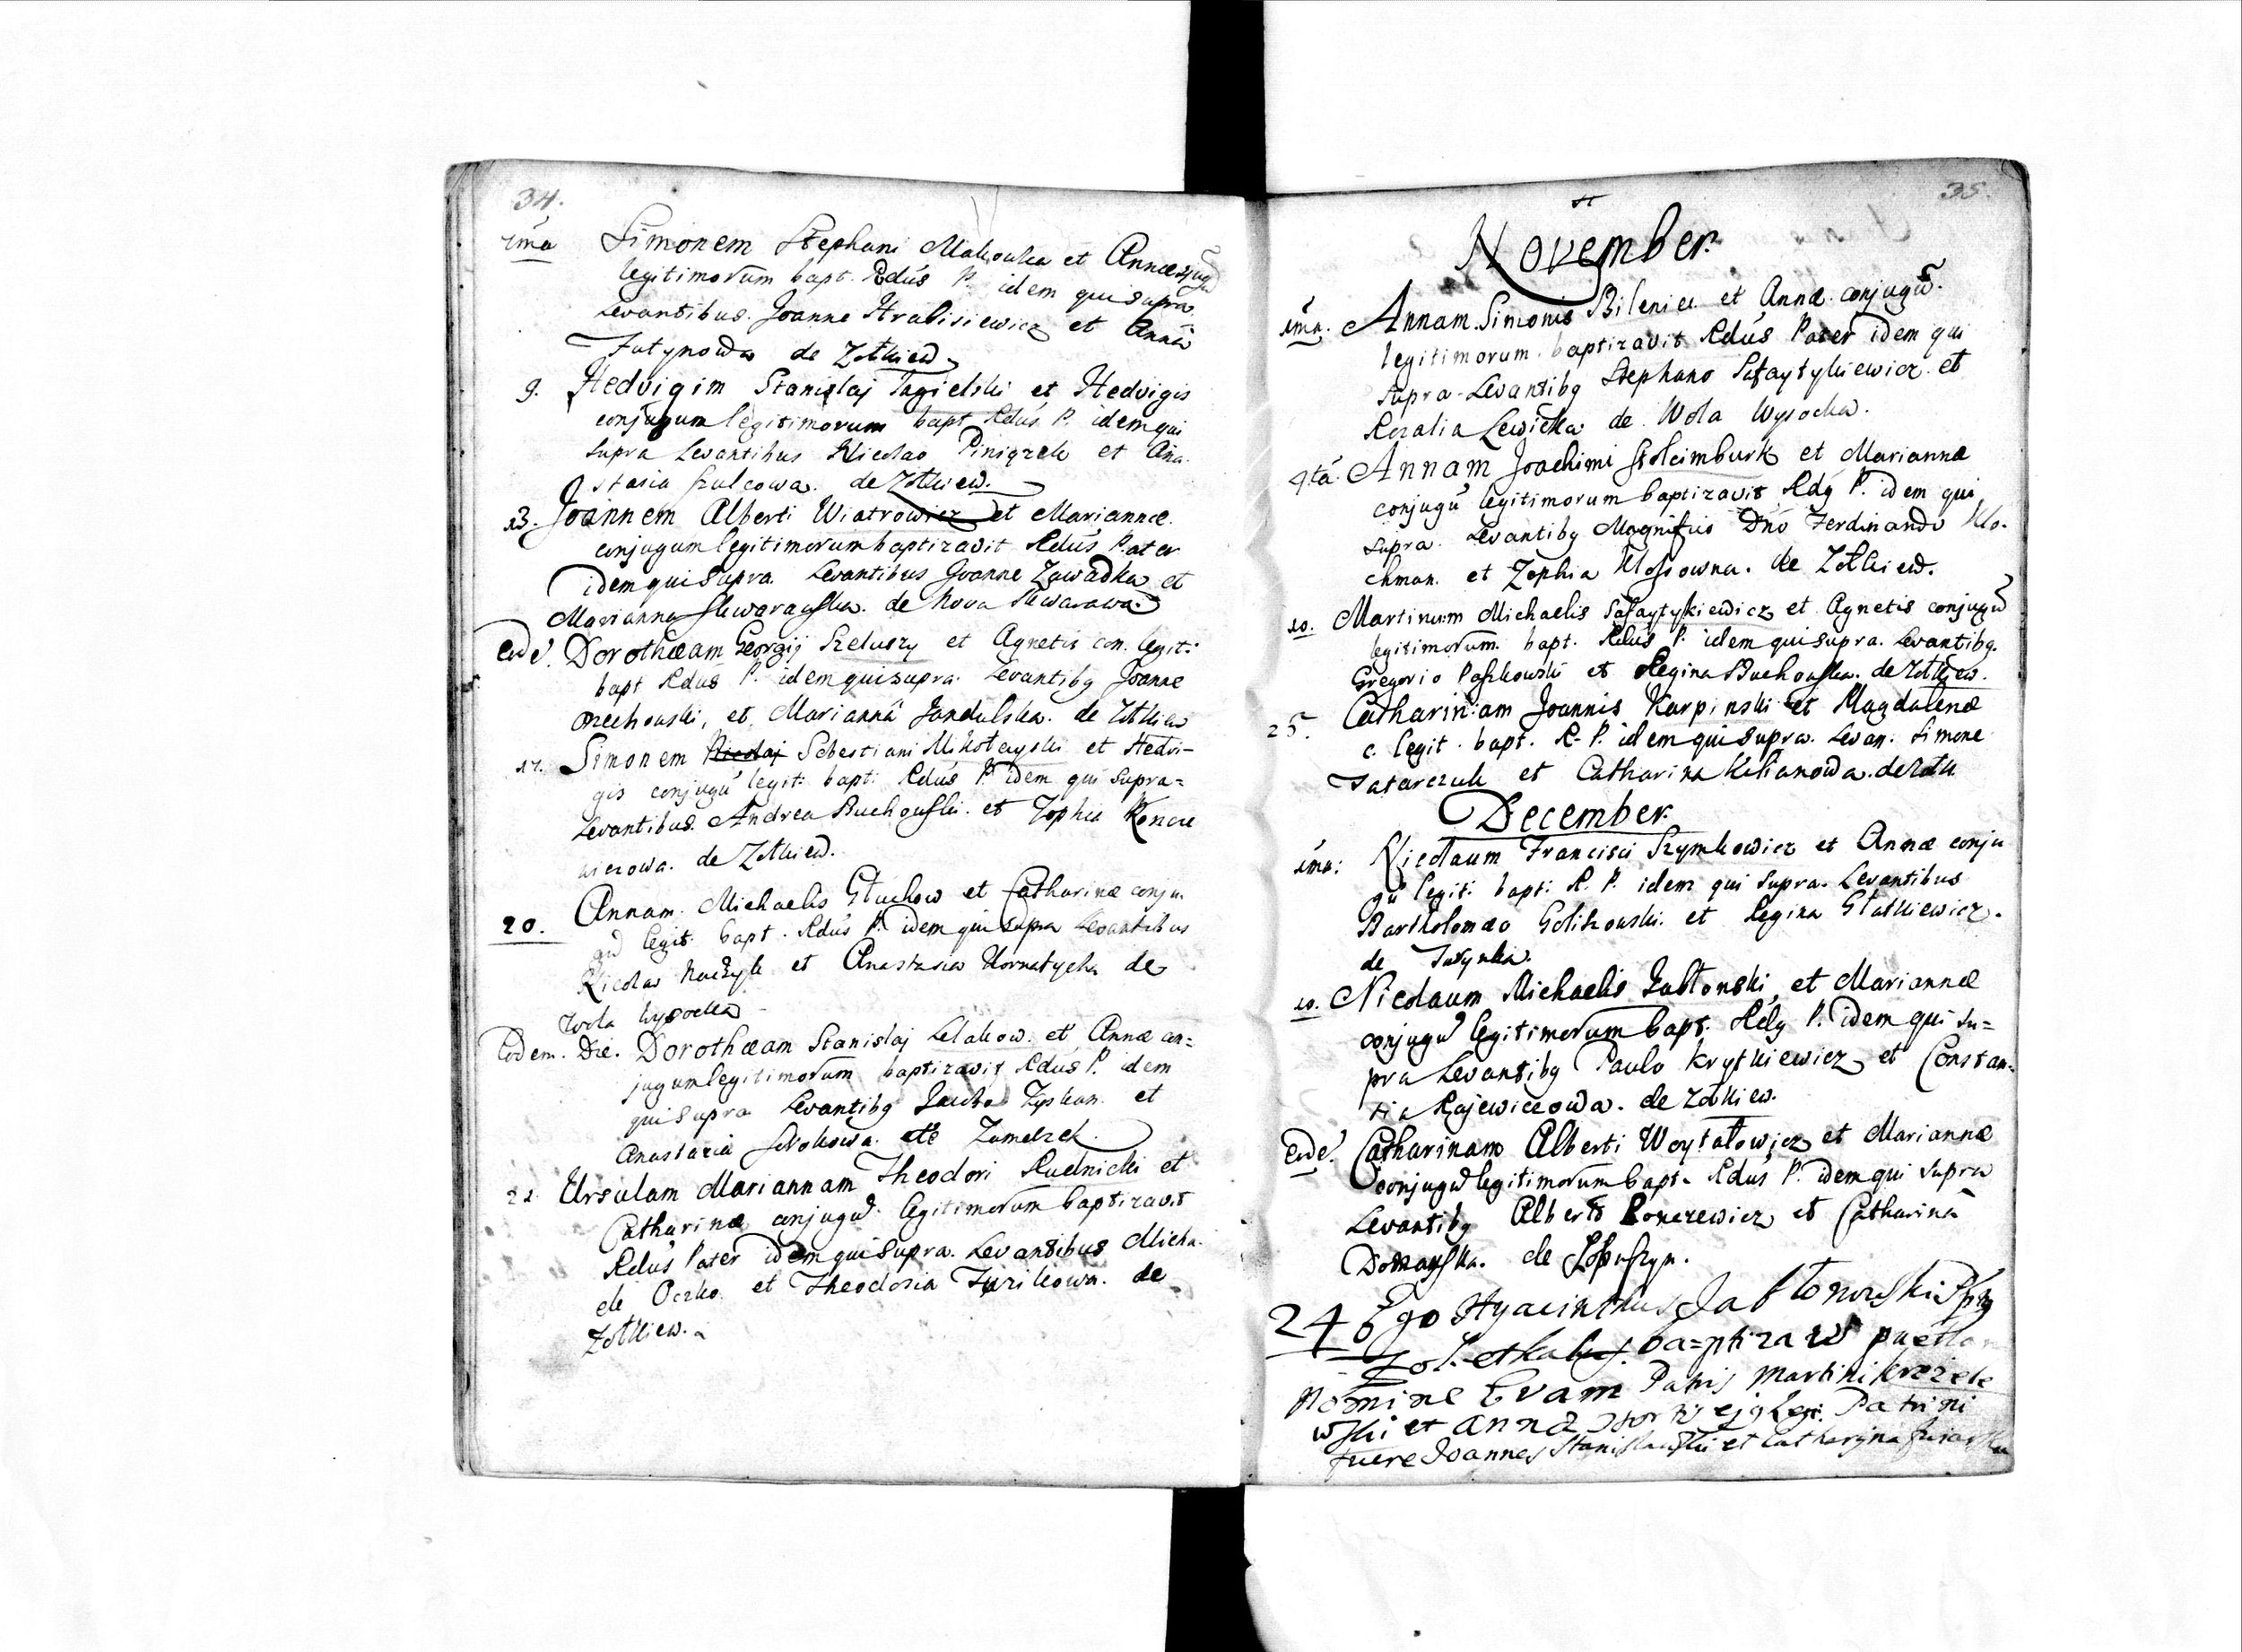 34.
ima Simonem Stephani Makouka et Annæ conjugũ
legitimorum bapt. Rdús P. idem qui supra
Levantibus. Joanne Strabisiewicz et Anna
Jutynowa de Zołkiew.
9. Hedvigim Stanislaj Jagielski et Hedvigis
conjugum legitimorum bapt Rdús P. idem qui
supra Levantibus Nicolao Piniązek et Ana
stasia Szulcowa. de Zołkiew.
13. Joannem Alberti Wiatrowicz et Mariannæ.
conjugum legitimorum baptizavit Rdús Pater
idem qui supra. Levantibus Joanne Zawadka et
Marianna Skwarawska. de Nova Skwarawa.
Eodé. Dorothæam Georgij Szeluszy et Agnetis con. legit:
bapt Rdús P. idem qui supra. Levantibg Joanne
Orzechouski, et Marianná Jandulska. de Zołkiew
17. Simonem Nicolaj Sebestiani Mikołayski et Hedvi-
gis conjugú legit: bapt: Rdús P. idem qui supra=
Levantibus. Andrea Buchouski. et Zophia Konce
wiczowa. de Zołkiew.
20. Annam. Michaelis Głuchow et Catharinæ conju.
gũ legit. bapt. Rdús P. idem qui supra Levantibus
Nicolao et Anastasia Kornatycka de
Wola Wysocka
Eodem. Die. Dorothæam Stanislaj Lelakow. et Annæ con=
jugum legitimorum baptizavit Rdús P. idem
qui supra Levantibg Jacobo Zyskan. et
Anastazia Sirokowa. de Zameczek.
22 Ursulam Mariannam Theodori Rudnicki et
Catharinæ conjugũ. legitimorum baptizavit
Rdús Pater idem qui supra. Levantibus Micha.
ele Oczko. et Theodosia Jurikowa. de
Zołkiew.
35.
November.
ima. Annam. Simonis Bileniec et Annæ. conjugũ.
legitimorum baptizavit Rdús Pater idem qui
supra. Levantibg Stephano Safaytykiewicz et
Rozalia Lewicka de Wola Wysocka.
4.tá. Annam Joachimi Stoleimburk et Mariannæ
conjugú legitimorum baptizavit Rdg P. idem qui
supra. Levantibg Magnifico Dnó Ferdinando Klo-
chman. et Zophia Klossowna. de Zołkiew.
10. Martinum Michaelis Safaytykiewicz et Agnetis conjugũ
legitimorum. bapt. Rdús P. idem qui supra. Levantibg.
Gregorio Paszkowski et Regina Buchouska. de Zołkiew.
25. Catharinam Joannis Karpinski et Magdalenæ
c. legit. bapt. R. P. idem qui supra. Levan. Simone
Tatarczuk et Catharina Kilianowa. de Zołk
December.
ima: Nicolaum Francisci Szymkowicz et Annæ conju
gú legit: bapt: R. P. idem qui supra. Levantibus
Bartholomæo Golizouski. et Regina Głatkiewicz.
de Turynka.
10. Nicolaum Michaelis Jabłonski, et Mariannæ
conjugũ legitimorum bapt. Rdg P. idem qui su=
pra Levantibg Paulo Krytkiewicz et Constan=
tia Rajewiczowa. de Zołkiew.
Eodé. Catharinam Alberti Woytałowicz et Mariannæ
conjugũ legitimorum bapt. Rdús P. idem qui supra
Levantibg Alberto Ronczewicz et Catharina
Domayska. de Łopuszyn.
24 Ego Hyacinthus Jabłonowski
Zol. ba=ptizavi puella
Nomine Evam Patris Martini Krezele
wski et Anna uxoris ejg Legi. Patrini
fuere Joannes Stanislauski et Catharyna